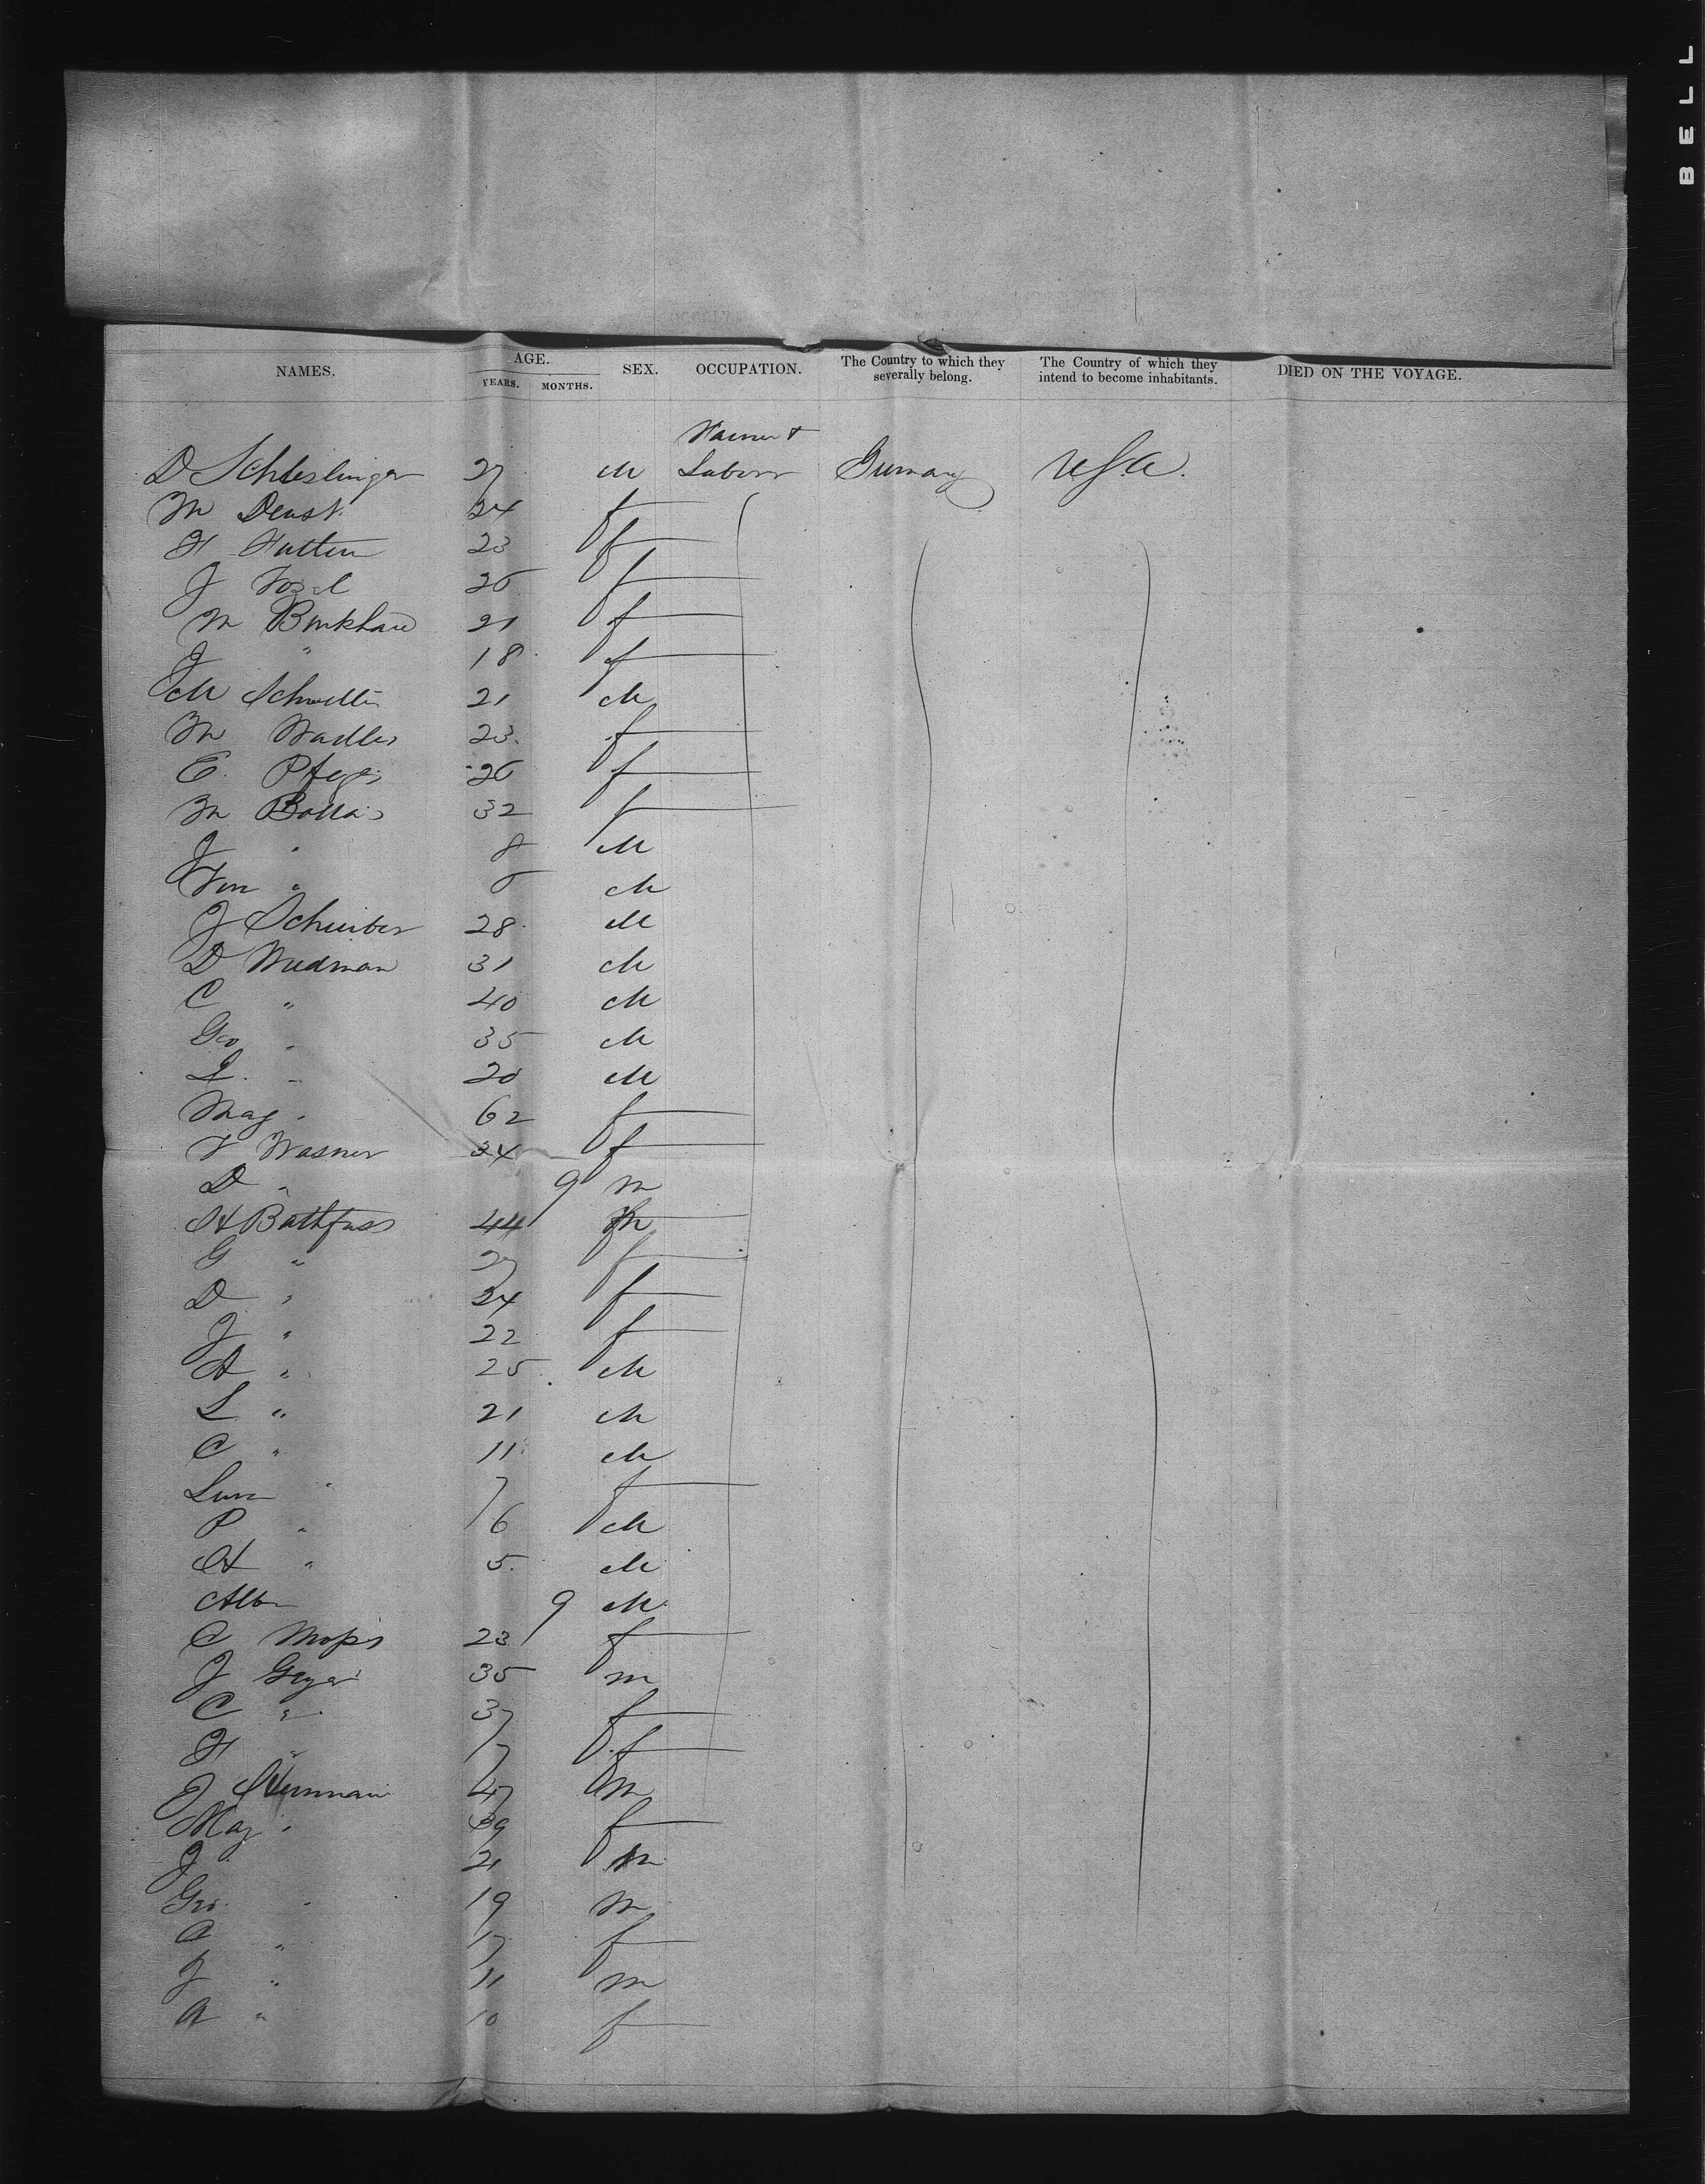 BELL
NAMES. AGE. YEARS. MONTHS. SEX. OCCUPATION. The Country to which they severally belong. The Country of which they intend to become inhabitants. DIED ON THE VOYAGE.
Farmer &
D Schleslinger 27 M Laborer Germany USA.
M Denst 24 f
H Hutten 23 f
J 26 f
M Burkhard 21 f
J " 18 f
M 21 M
M 23 f
E. 26 f
M 32 f
J " 8 M
" 6 M
J Schreiber 28 M
D Wiedman 31 M
C " 40 M
Geo " 35 M
L. " 20 M
Mag " 62 f
F Wasner 24 f
D " 9 m
H Bathfuss 44 m
G " 27 f
D " 24 f
J " 22 f
A " 25 M
L " 21 M
C " 11 M
" 7 f
P " 6 M
H " 5 M
Alb 9 M
C 23 f
J Geyer 35 m
C " 37 f
H " 17 f
J 47 m
Mag " 39 f
J " 21 m
Geo " 19 m
C " 17 f
J " 11 m
A " 10 f